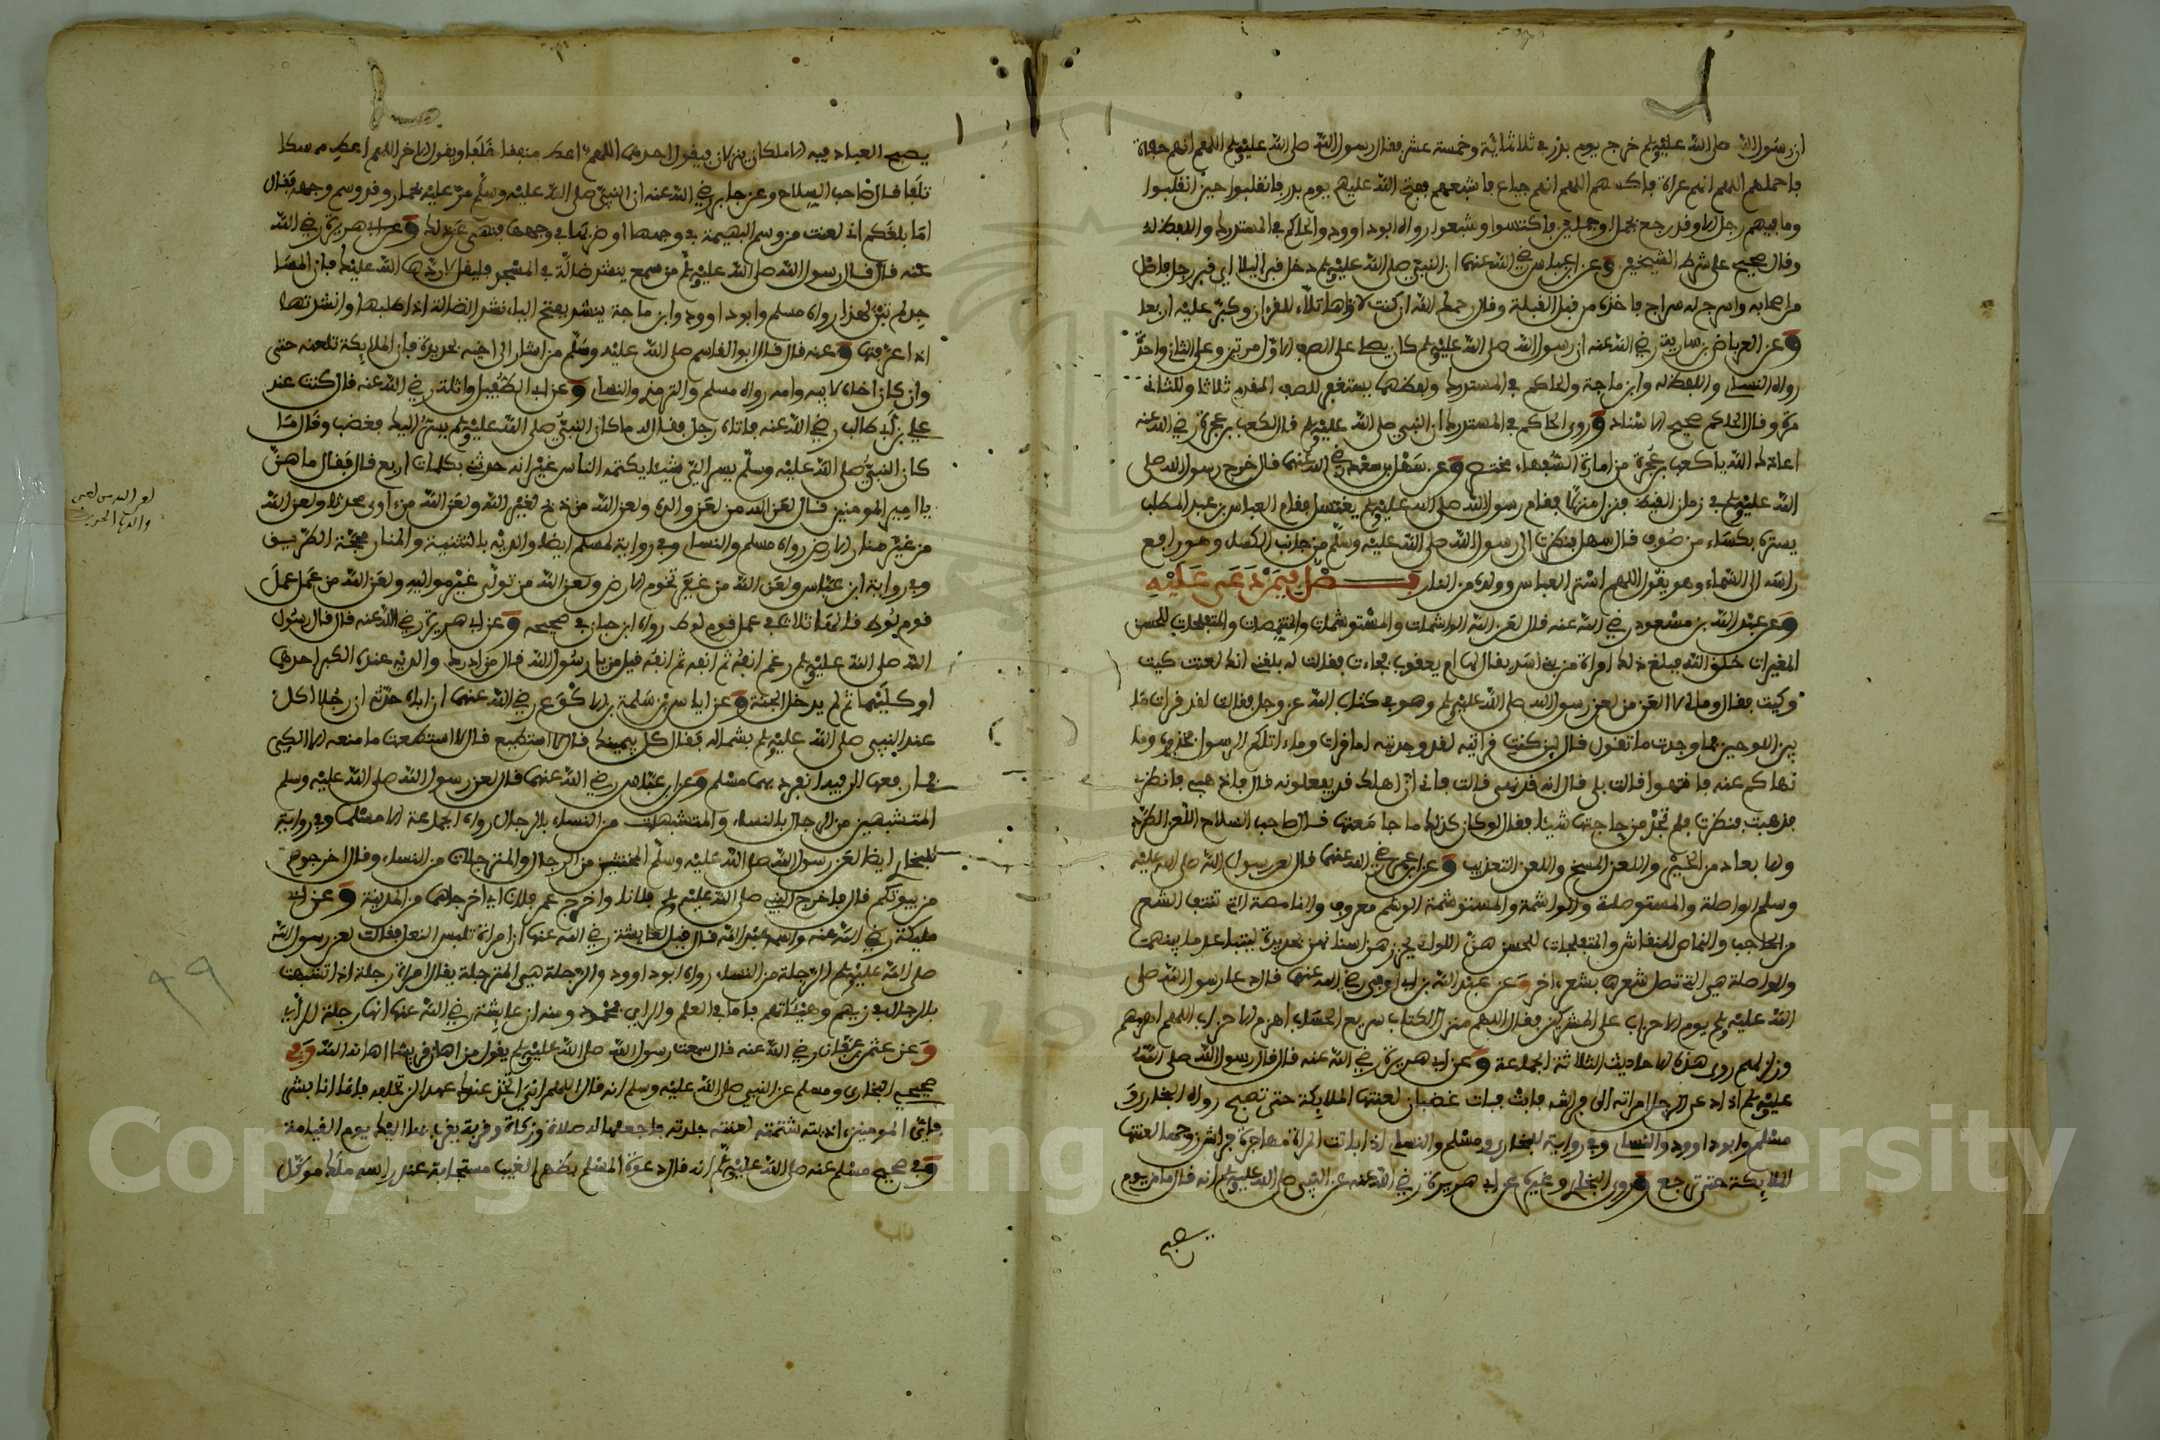 ان رسول الله صلى الله عليه وسلم خرج يوم بدر في ثلاثمائة وخمسة عشر فقال رسول الله صلى الله عليه وسلم اللهم انهم حفاة
فاحملهم اللهم انهم عراة فاكسهم اللهم انهم جياع فاشبعهم ففتح الله عليهم يوم بدر فانقلبوا حين انقلبوا
وما فيهم رجل الا وقد رجع بجمل او جملين واكتسوا وشبعوا رواه ابو داوود والحاكم في المستدرك واللفظ له
وقال صحيح على شرط الشيخين وعن ابن عباس رضي الله عنهما ان النبي صلى الله عليه وسلم دخل قبرا ليلا
فاخذه من قبل القبلة وقال رحمك الله ان كنت لاواها تلاء للقرءان وكبر عليه اربعا
وعن العرباض بن سارية رضي الله عنه ان رسول الله صلى الله عليه وسلم كان يصلي على الصف الاول مرتين وعلى الثاني واحدة
رواه النسائي واللفظ له وابن ماجة والحاكم في المستدرك ولفظهما يستغفر للصف المقدم ثلاثا وللثاني
مرة وقال الحاكم صحيح الاسناد وروى الحاكم في المستدرك ان النبي صلى الله عليه وسلم قال لكعب بن عجرة رضي الله عنه
اعاذك الله يا كعب بن عجرة من امارة السفهاء مختصر وعن سهل بن سعد رضي الله عنهما قال خرج رسول الله صلى
الله عليه وسلم في زمان القيظ فنزل منزلا فقام رسول الله صلى الله عليه وسلم يغتسل فقام العباس بن عبد المطلب
يستره بكساء من صوف قال سهل فنظرت الى رسول الله صلى الله عليه وسلم من جانب الكساء وهو رافع
راسه الى السماء وهو يقول اللهم استر العباس وولده من النار فصل فيمن دعى عليه
وعن عبد الله بن مسعود رضي الله عنه قال لعن الله الواشمات والمستوشمات والمتنمصات والمتفلجات للحسن
المغيرات خلق الله فبلغ ذلك امراة من بني اسد يقال لها ام يعقوب فجاءت فقالت له بلغني انك لعنت كيت
وكيت فقال ومالي لا العن من لعن رسول الله صلى الله عليه وسلم وهو في كتاب الله عز وجل فقالت لقد قرات ما
بين اللوحين فما وجدت ما تقول قال لين كنت قراتيه لقد وجدتيه اما قرات وما ءاتاكم الرسول فخذوه وما
نهاكم عنه فانتهوا قالت بلى قال انه قد نهى قالت فاني ارى اهلك قد يفعلونه قال فاذهبي فانظري
فذهبت فنظرت فلم تر من حاجتها شيئا فقال لو كان كذلك ما جامعتها قال صاحب السلاح اللعن الطرد
والابعاد من الخير واللعن المسخ واللعن التعذيب وعن ابن عمر رضي الله عنهما قال لعن رسول الله صلى الله عليه
وسلم الواصلة والمستوصلة والواشمة والمستوشمة الوشم معروف والنامصة التي تنتف الشعر
من الحاجب والنماص المنقاش والمتفلجات للحسن هن
والواصلة هي التي تصل شعرها بشعر اخر وعن عبد الله بن ابي اوفى رضي الله عنهما قال دعا رسول الله صلى
الله عليه وسلم يوم الاحزاب على المشركين فقال اللهم منزل الكتاب سريع الحساب اهزم الاحزاب اللهم اهزمهم
وزلزلهم روى هذه الاحاديث الثلاثة الجماعة وعن ابي هريرة رضي الله عنه قال قال رسول الله صلى الله
عليه وسلم اذا دعى الرجل امراته الى فراشه فابت فبات غضبان لعنتها الملايكة حتى تصبح رواه البخاري و
مسلم وابو داوود والنسائي وفي رواية للبخاري ومسلم والنسائي اذا باتت المراة مهاجرة فراش زوجها لعنتها
الملايكة حتى ترجع وروى البخاري وغيره عن ابي هريرة رضي الله عنه عن النبي صلى الله عليه وسلم انه قال ما من يوم
يصبح العباد فيه الا ملكان ينزلان فيقول احدهما اللهم اعط منفقا خلفا ويقول الاخر اللهم اعط ممسكا
تلفا قال صاحب السلاح وعن جابر رضي الله عنه ان النبي صلى الله عليه وسلم مر عليه بحمار وقد وسم وجهه فقال
اما بلغكم اني لعنت من وسم البهيمة في وجهها او ضربها في وجهها فنهى عن ذلك وعن ابي هريرة رضي الله
عنه قال قال رسول الله صلى الله عليه وسلم من سمع ينشد ضالة في المسجد فليقل لا ردها الله عليك فان المسا
جد لم تبن لهذا رواه مسلم وابو داوود وابن ماجة ينشد بفتح الياء نشد الضالة اذا طلبها وانشدتها
اذا عرفتها وعنه قال قال ابو القاسم صلى الله عليه وسلم من اشار الى اخيه بحديدة فان الملايكة تلعنه حتى
وان كان اخاه لابيه وامه رواه مسلم والترمذي والنسائي وعن ابي الطفيل واثلة رضي الله عنه قال كنت عند
علي بن ابي طالب رضي الله عنه فاتاه رجل فقال له ما كان النبي صلى الله عليه وسلم يسر اليك فغضب وقال ما
كان النبي صلى الله عليه وسلم يسر الي شيئا يكتمه الناس غير انه حدثني بكلمات اربع قال فقال ما هن
يا امير المومنين قال لعن الله من لعن والده ولعن الله من ذبح لغير الله ولعن الله من ءاوى محدثا ولعن الله
من غير منار الارض رواه مسلم والنسائي وفي رواية لمسلم ايضا والديه بالتثنية والمنار محجة الطريق
وفي رواية ابن عباس ولعن الله من غير تخوم الارض ولعن الله من تولى غير مواليه ولعن الله من عمل عمل
قوم لوط قالها ثلاثا في عمل قوم لوط رواه ابن حبان في صحيحه وعن ابي هريرة رضي الله عنه قال قال رسول
الله صلى الله عليه وسلم رغم انفه ثم انفه ثم انفه قيل من يا رسول الله قال من ادرك والديه عنده الكبر احدهما
او كليهما ثم لم يدخل الجنة وعن اياس بن سلمة بن الاكوع رضي الله عنهما ان اباه حدثه ان رجلا اكل
عند النبي صلى الله عليه وسلم بشماله فقال كل بيمينك قال لا استطيع قال لا استطعت ما منعه الا الكبر
فما رفعها الى فيه انفرد بهما مسلم وعن ابن عباس رضي الله عنهما قال لعن رسول الله صلى الله عليه وسلم
المتشبهين من الرجال بالنساء والمتشبهات من النساء بالرجال رواه الجماعة الا مسلما وفي رواية
للبخاري ايضا لعن رسول الله صلى الله عليه وسلم المخنثين من الرجال والمترجلات من النساء وقال اخرجوهم
من بيوتكم قال فاخرج النبي صلى الله عليه وسلم فلانا واخرج عمر فلانا اي اخرجاهما من المدينة وعن ابن
مليكة رضي الله عنه واسمه عبد الله قال قيل لعايشة رضي الله عنها ان امراة تلبس النعل فقالت لعن رسول الله
صلى الله عليه وسلم الرجلة من النساء رواه ابو داوود والرجلة هي المترجلة يقال امراة رجلة اذا تشبهت
بالرجال في زيهم وهيئاتهم فاما في العلم والراي فمحمود ومنه ان عايشة رضي الله عنها انها رجلة الراي
وعن عثمن بن عفان رضي الله عنه قال سمعت رسول الله صلى الله عليه وسلم يقول من اهان قريشا اهانه الله وفي
صحيحي البخاري ومسلم عن النبي صلى الله عليه وسلم انه قال اللهم اني اتخذ عندك عهدا لن تخلفه فانما انا بشر
فاي المومنين اذيته شتمته لعنته جلدته فاجعلها له صلاة وزكاة وقربة تقربه بها اليك يوم القيامة
وفي صحيح مسلم عنه صلى الله عليه وسلم انه قال دعوة المسلم بظهر الغيب مستجابة عند راسه ملك موكل
يصبح
٩٩
Copyright © King Saud University